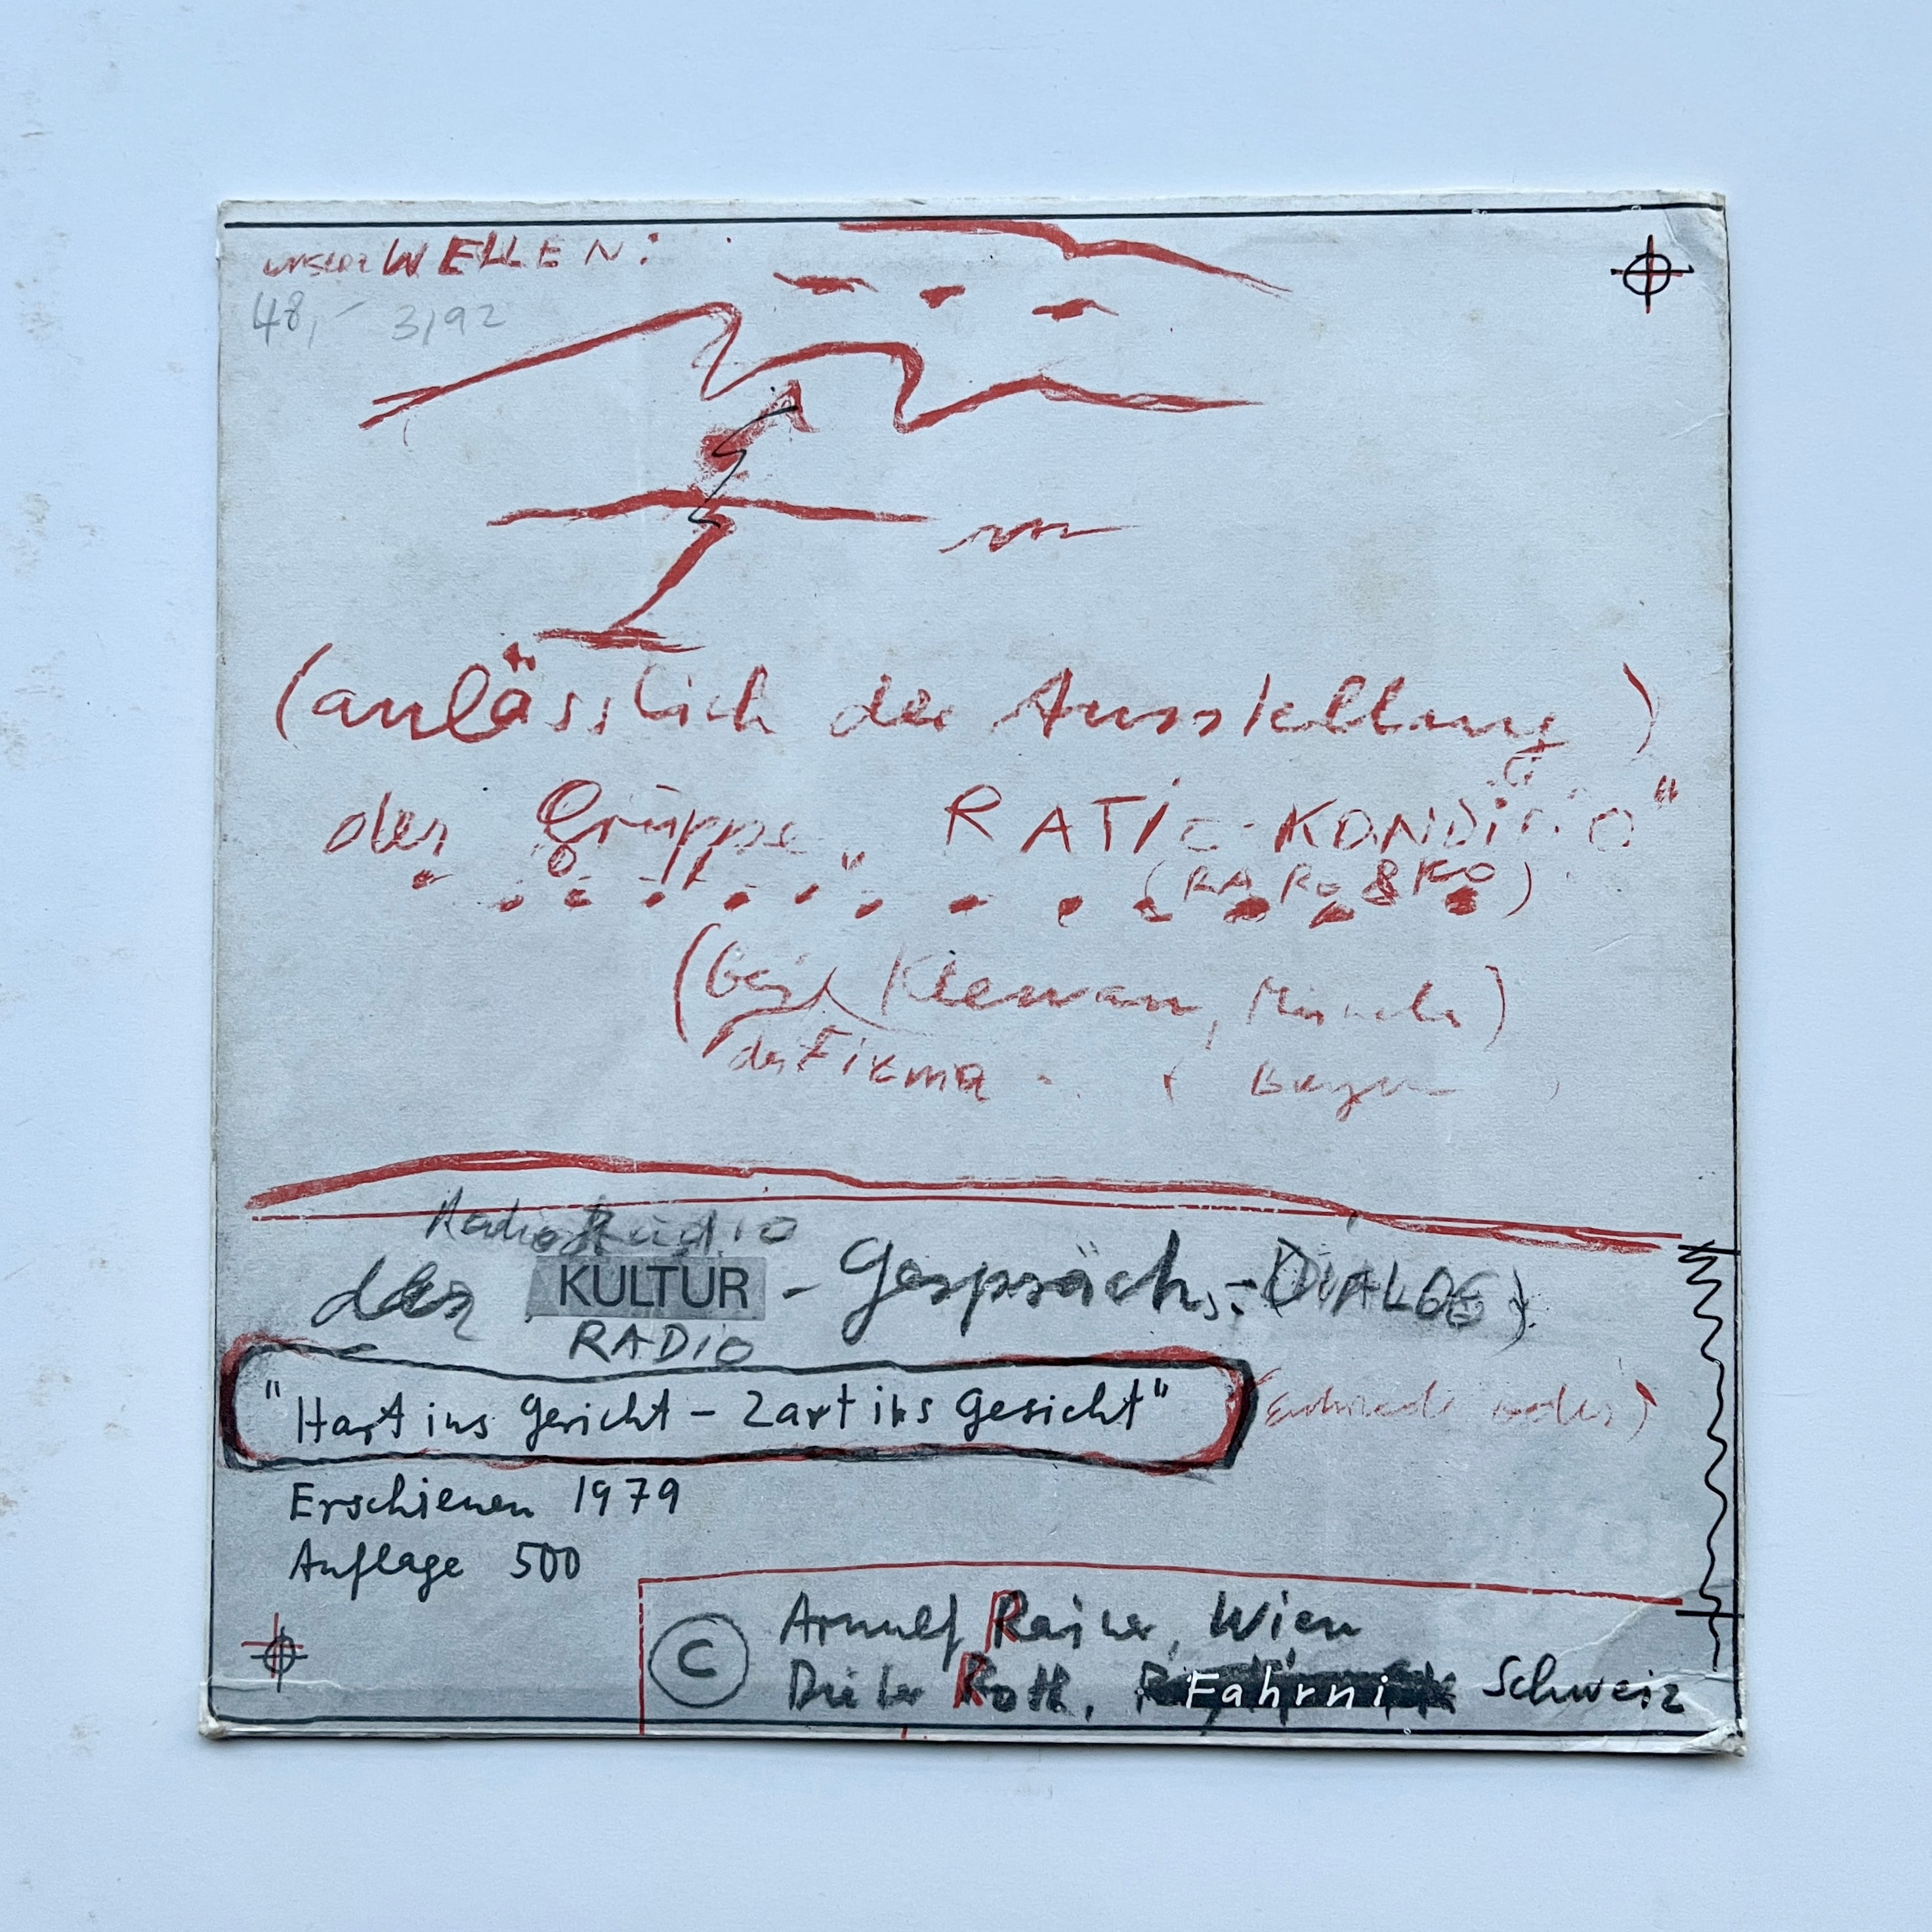 unsere WELLEN:
48,- 3/92
(anlässlich der Ausstellung)
der Gruppe „RATIO-KONDITIO"
(RARO & KO)
(bei Klewan, München)
der Firma
Radio Radio
der KULTUR - Gesprächs-(DIALOGE)
RADIO
"Hart ins Gericht – Zart ins Gesicht" oder)
Erschienen 1979
Auflage 500
© Arnulf Rainer, Wien
Dieter Roth, Fahrni Schweiz